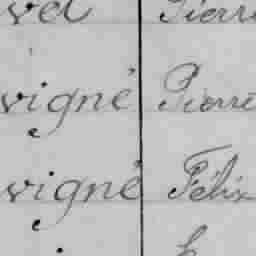 vel Pierre
vigné Pierre
vigné Félix